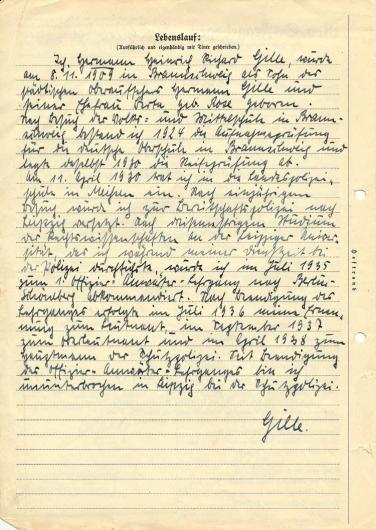 Lebenslauf:
(Ausführlich und eigenhändig mit Tinte geschrieben.)
Ich, Hermann Heinrich Richard Gille, wurde
am 8.11.1909 in Braunschweig als Sohn des
städtischen Oberaufsehers Hermann Gille und
seiner Ehefrau Berta geb. Rose geboren.
Nach Besuch der Volks- und Mittelschule in Braun-
schweig bestand ich 1924 die Aufnahmeprüfung
für die deutsche Oberschule in Braunschweig und
legte daselbst 1930 die Reifeprüfung ab.
Am 11. April 1930 trat ich in die Landespolizei-
schule in Meißen ein. Nach einjährigem
Besuch wurde ich zur Bereitschaftspolizei nach
Leipzig versetzt. Nach dreisemestrigem Studium
der Rechtswissenschaften an der Leipziger Univer-
sität, das ich während meiner Dienstzeit bei
der Polizei durchführte, wurde ich im Juli 1935
zum 1. Offizier-Anwärter-Lehrgang nach Berlin-
Schöneberg abkommandiert. Nach Beendigung des
Lehrganges erfolgte im Juli 1936 meine Ernen-
nung zum Leutnant, im September 1937
zum Oberleutnant und im April 1938 zum
Hauptmann der Schutzpolizei. Seit Beendigung
des Offizier-Anwärter-Lehrganges bin ich
ununterbrochen in Leipzig bei der Schutzpolizei.
Gille.
Heftrand